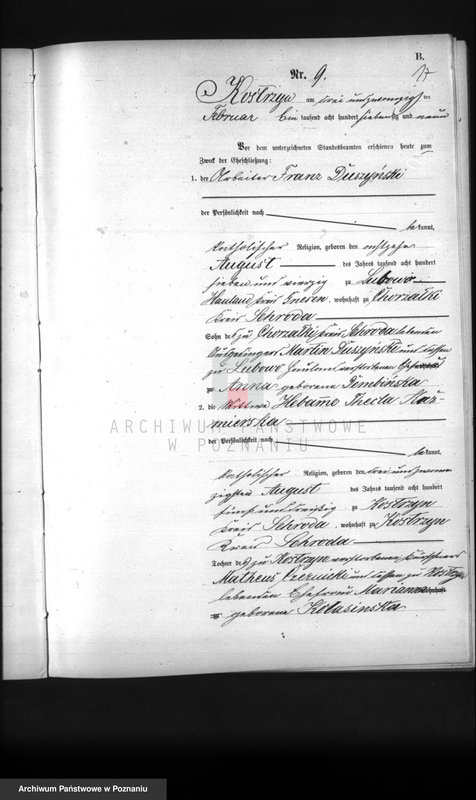 B.
Nr. 9.
17
Kostrzyn am drei und zwanzigsten
Februar Ein tausend acht hundert siebenzig und neun
Vor dem unterzeichneten Standesbeamten erschienen heute zum
Zweck der Eheschließung:
1. der Arbeiter Franz Duszyński
der Persönlichkeit nach
bekannt,
katholischer Religion, geboren den achtzehn
August des Jahres tausend acht hundert
sieben und vierzig zu Lubowo
Hauland Kreis Gnesen, wohnhaft zu Chorzałki
Kreis Schroda
Sohn des zu Chorzałki Kreis Schroda lebenden
Martin Duszyński und dessen
zu Lubowo Hauland verstorbenen Ehefrau
Anna geborene Dembińska
2. die Wittwe Hebamme Thecla Kaź-
mierska
ARCHIWUM PAŃSTWOWE
W POZNANIU
der Persönlichkeit nach
bekannt,
katholischer Religion, geboren den drei und zwan-
zigsten August des Jahres tausend acht hundert
fünf und dreißig zu Kostrzyn
Kreis Schroda, wohnhaft zu Kostrzyn
Kreis Schroda
Tochter des zu Kostrzyn verstorbenen Kürschners
Matheus Czernicki und dessen zu Kostrzyn
lebenden Ehefrau Marianna wohnhaft
zu geborene Kołasinska
Archiwum Państwowe w Poznaniu